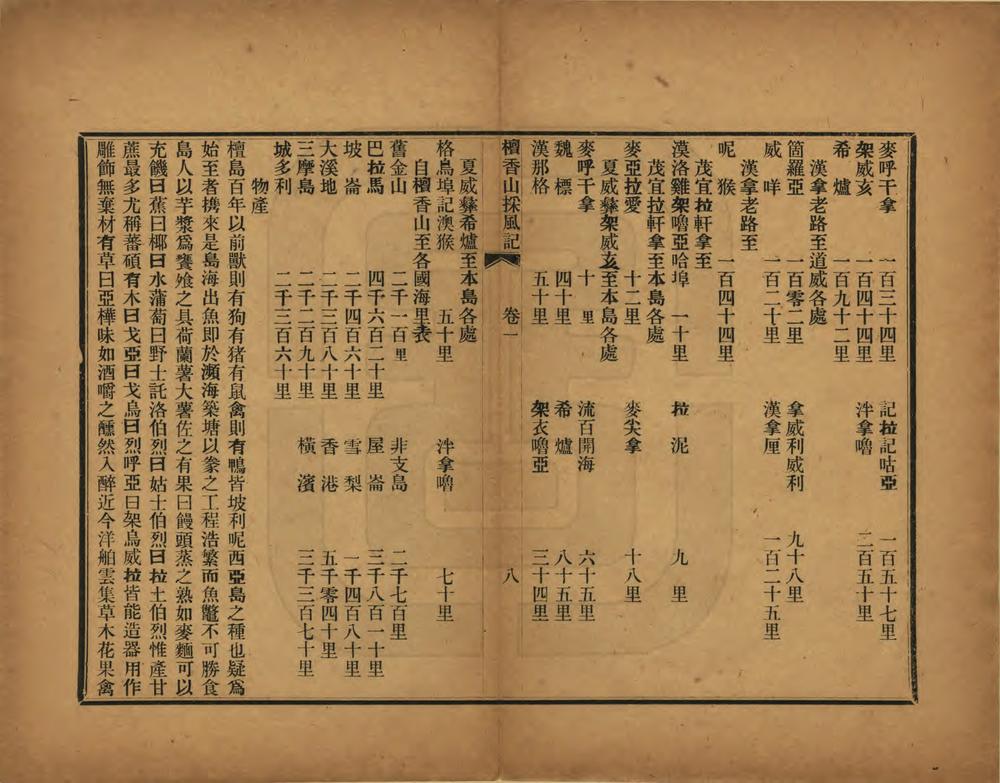 麥呼干拿　一百三十四里　記拉記咕亞　一百五十七里
架威亥　一百四十四里　泮拿嚕　二百五十里
希爐　一百九十二里
漢拿老路至道威各處
箇羅亞　一百零二里　拿威利威利　九十八里
威咩　一百二十里　漢拿厘　一百二十五里
漢拿老路至
呢猴　一百四十四里
茂宜拉軒拿至
漠洛雞架嚕亞哈埠　一十里　拉泥　九里
茂宜拉軒拿至本島各處
麥亞拉愛　十二里　麥尖拿　十八里
夏威彝架威亥至本島各處
麥呼干拿　十里　流百開海　六十五里
魏標　四十里　希爐　八十五里
漢那格　五十里　架衣嚕亞　三十四里
檀香山採風記　卷一　八
夏威彝希爐至本島各處
格烏埠記澳猴　五十里　泮拿嚕　七十里
自檀香山至各國海里表
舊金山　二千一百里　非支島　二千七百里
巴拉馬　四千六百二十里　屋崙　三千八百一十里
坡崙　二千四百六十里　雪梨　一千四百八十里
大溪地　二千三百八十里　香港　五千零四十里
三摩島　二千二百九十里　橫濱　三千三百七十里
城多利　二千三百六十里
物產
檀島百年以前獸則有狗有猪有鼠禽則有鴨皆坡利呢西亞島之種也疑爲
始至者携來是島海出魚卽於瀕海築塘以豢之工程浩繁而魚鼈不可勝食
島人以芋漿爲饔飧之具荷蘭薯大薯佐之有果曰饅頭蒸之熟如麥麵可以
充饑曰蕉曰椰曰水蒲萄曰野士託洛伯烈曰姑士伯烈曰拉士伯烈惟產甘
蔗最多尤稱蕃碩有木曰戈亞曰戈烏曰烈呼亞曰架烏威拉皆能造器用作
雕飾無棄材有草曰亞樺味如酒嚼之醺然入醉近今洋舶雲集草木花果禽